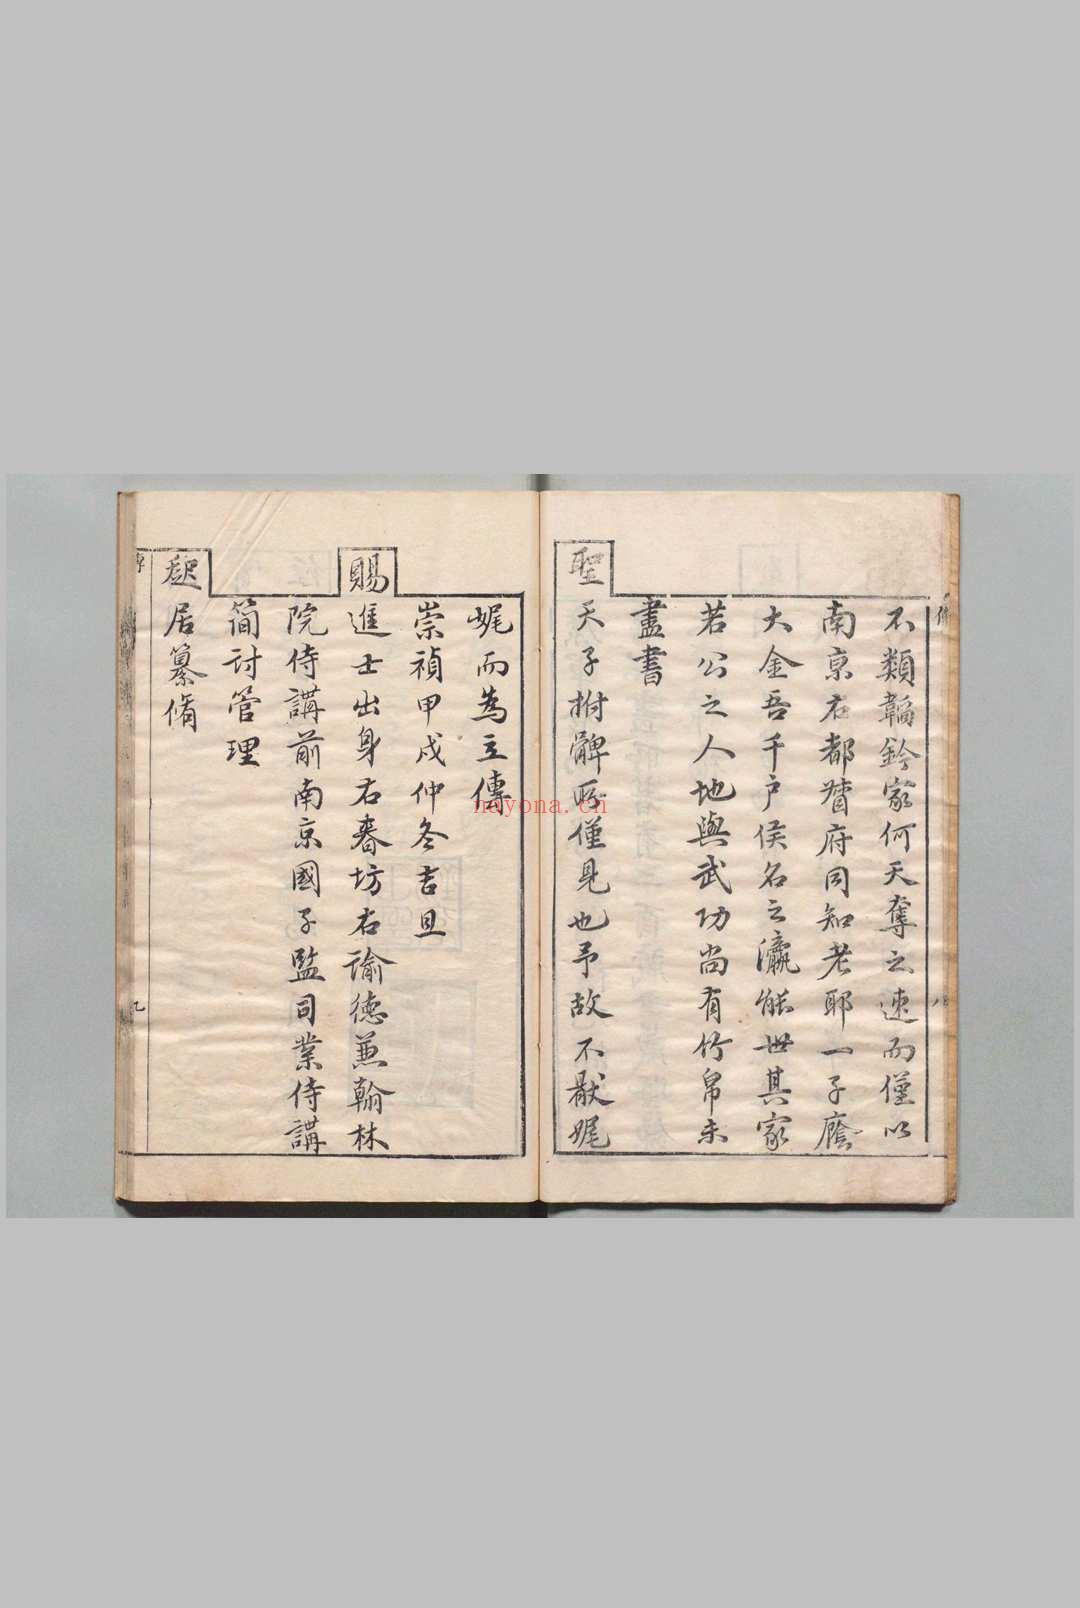 不類韜鈐家何天奪之速而僅以
南京右都督府同知老耶一子廕
大金吾千戶侯名之瀛能世其家
若公之人地與武功尚有竹帛未
盡書
聖天子拊髀所僅見也予故不厭娓
娓而為立傳
崇禎甲戌仲冬吉旦
賜進士出身右春坊右諭德兼翰林
院侍講前南京國子監司業侍講
簡討管理
起居纂脩
nayona.cn